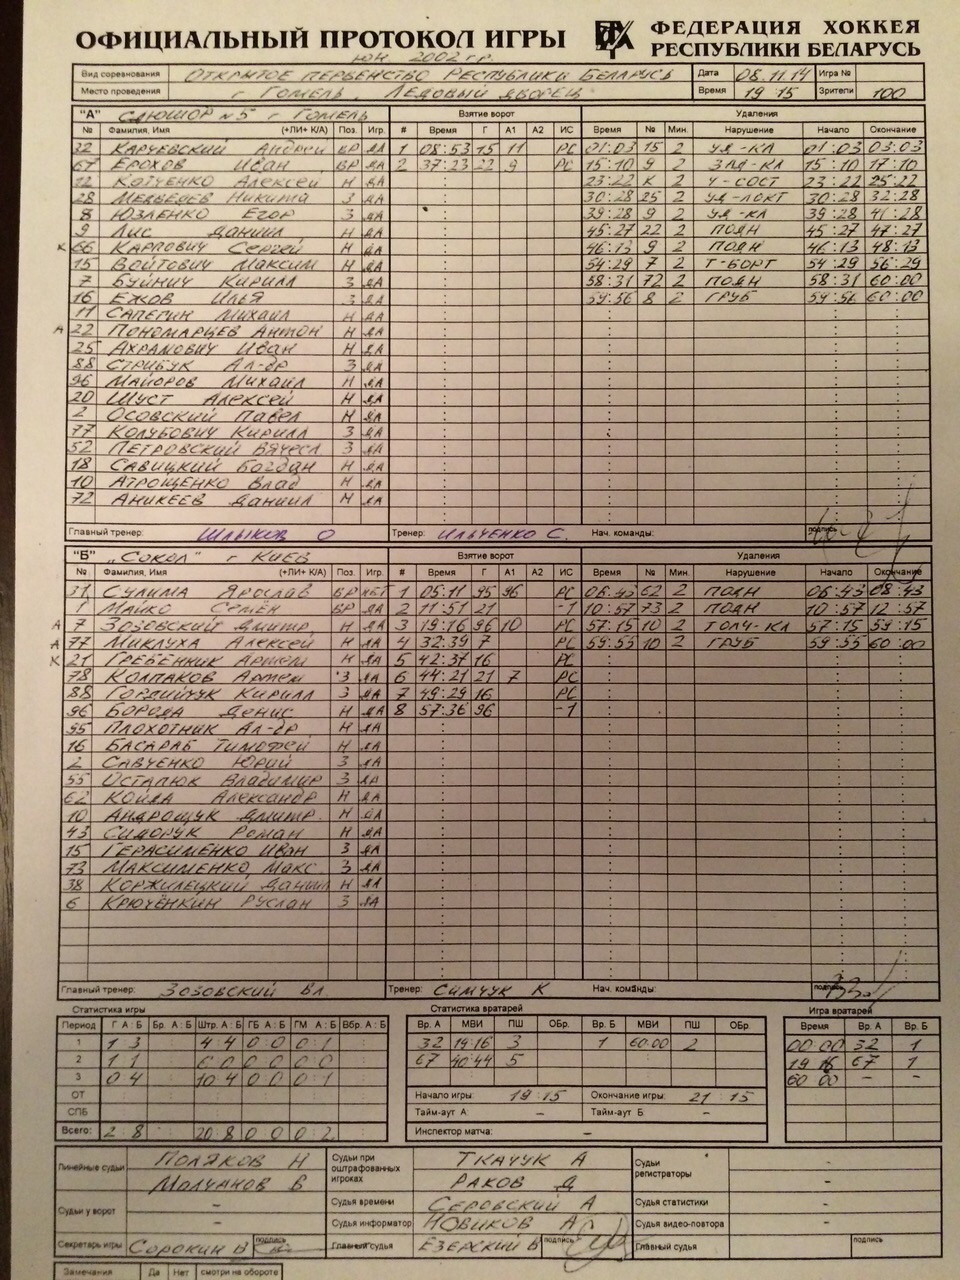 ОФИЦИАЛЬНЫЙ ПРОТОКОЛ ИГРЫ
ФЕДЕРАЦИЯ ХОККЕЯ
РЕСПУБЛИКИ БЕЛАРУСЬ
юн. 2002 г.р.
Вид соревнования ОТКРЫТОЕ ПЕРВЕНСТВО РЕСПУБЛИКИ БЕЛАРУСЬ Дата 08.11.14 Игра №
Место проведения г ГОМЕЛЬ, ЛЕДОВЫЙ ДВОРЕЦ Время 19 15 Зрители 100
"А" СДЮШОР №5 г ГОМЕЛЬ Взятие ворот Удаления
№ Фамилия, Имя (+ЛИ+ К/А) Поз. Игр. # Время Г А1 А2 ИС Время № Мин. Нарушение Начало Окончание
32 КАРЧЕВСКИЙ Андрей ВР ДА 1 08:53 15 11 РС 01:03 15 2 УД-КЛ 01:03 03:03
67 ЕРОХОВ Иван ВР ДА 2 37:23 22 9 РС 15:10 9 2 ЗАД-КЛ 15:10 17:10
12 КОТЧЕНКО Алексей Н ДА 23:22 К 2 Ч-СОСТ 23:22 25:22
28 МЕДВЕДЕВ Никита З ДА 30:28 25 2 УД-ЛОКТ 30:28 32:28
8 ЮЗЛЕНКО Егор З ДА 39:28 9 2 УД-КЛ 39:28 41:28
9 ЛИС Даниил Н ДА 45:27 22 2 ПОДН 45:27 47:27
К 66 КАРПОВИЧ Сергей Н ДА 46:13 9 2 ПОДН 46:13 48:13
15 ВОЙТОВИЧ Максим Н ДА 54:29 7 2 Т-БОРТ 54:29 56:29
7 БУЙНИЧ Кирилл З ДА 58:31 72 2 ПОДН 58:31 60:00
16 ЕЖОВ Илья З ДА 59:56 8 2 ГРУБ 59:56 60:00
11 САПЕГИН Михаил Н ДА
А 22 ПОНОМАРЦЕВ Антон Н ДА
25 АХРАМОВИЧ Иван Н ДА
88 СТРИБУК Ал-др З ДА
96 МАЙОРОВ Михаил Н ДА
20 ШУСТ Алексей Н ДА
2 ОСОВСКИЙ Павел Н ДА
77 КОЛУБОВИЧ Кирилл З ДА
52 ПЕТРОВСКИЙ Вячесл З ДА
18 САВИЦКИЙ Богдан Н ДА
10 АТРОЩЕНКО Влад Н ДА
72 АНИКЕЕВ Даниил Н ДА
Главный тренер: ШЛЫКОВ О Тренер: ИЛЬЧЕНКО С. Нач. команды: подпись
"Б" „СОКОЛ" г КИЕВ Взятие ворот Удаления
№ Фамилия, Имя (+ЛИ+ К/А) Поз. Игр. # Время Г А1 А2 ИС Время № Мин. Нарушение Начало Окончание
31 СУЛИМА Ярослав ВР НЕТ 1 05:11 95 96 РС 06:43 62 2 ПОДН 06:43 08:43
1 МАЙКО Семён ВР ДА 2 11:51 21 -1 10:57 73 2 ПОДН 10:57 12:57
А 7 ЗОЗОВСКИЙ Дмитр Н ДА 3 19:16 96 10 РС 57:15 10 2 ТОЛЧ-КЛ 57:15 59:15
А 77 МИКЛУХА Алексей Н ДА 4 32:39 7 РС 59:55 10 2 ГРУБ 59:55 60:00
К 21 ГРЕБЕННИК Артём Н ДА 5 42:37 16 РС
78 КОЛПАКОВ Артём З ДА 6 44:21 21 7 РС
88 ГОРДИЙЧУК Кирилл З ДА 7 49:29 16 РС
96 БОРОДА Денис Н ДА 8 57:36 96 -1
95 ПЛОХОТНИК Ал-др Н ДА
16 БАСАРАБ Тимофей Н ДА
2 САВЧЕНКО Юрий З ДА
55 ОСТАПЮК Владимир З ДА
62 КОЙДА Александр Н ДА
10 АНДРОЩУК Дмитр. Н ДА
43 СИДОРУК Роман Н ДА
15 ГЕРАСИМЕНКО Иван З ДА
73 МАКСИМЕНКО Макс З ДА
38 КОРЖИЛЕЦКИЙ Даниил Н ДА
6 КРЮЧЁНКИН Руслан З ДА
Главный тренер: ЗОЗОВСКИЙ Вл. Тренер: СИМЧУК К Нач. команды: подпись
Статистика игры Статистика вратарей Игра вратарей
Период Г А:Б Бр. А:Б Штр. А:Б ГБ А:Б ГМ А:Б Вбр. А:Б Вр. А МВИ ПШ ОБр. Вр. Б МВИ ПШ ОБр. Время Вр. А Вр. Б
1 1 3 4 4 0 0 0 1 32 19:16 3 1 60:00 2 00:00 32 1
2 1 1 6 0 0 0 0 0 67 40:44 5 19 16 67 1
3 0 4 10 4 0 0 0 1 60 00 - -
ОТ Начало игры: 19:15 Окончание игры: 21 15
СПБ Тайм-аут А – Тайм-аут Б –
Всего: 2 8 20 8 0 0 0 2 Инспектор матча: –
Линейные судьи ПОЛЯКОВ Н Судьи при оштрафованных игроках ТКАЧУК А Судьи регистраторы -
МОЛЧАНОВ В РАКОВ Д -
Судьи у ворот - Судья времени СЕРОВСКИЙ А Судья статистики -
- Судья информатор НОВИКОВ А Судья видео-повтора -
Секретарь игры СОРОКИН В подпись Главный судья ЕЗЕРСКИЙ В подпись Главный судья подпись
Замечания Да Нет смотри на обороте